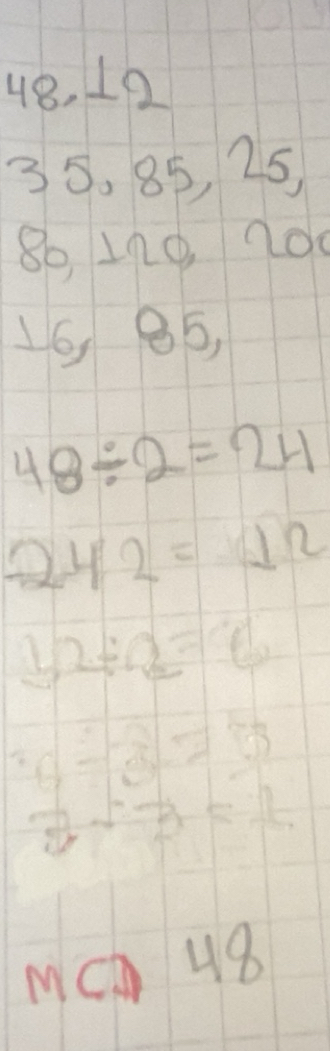 48, 12
35, 85, 25,
80, 120, 200
16, 85,
48÷2=24
24 2= 12
12÷2=6
MCD 48